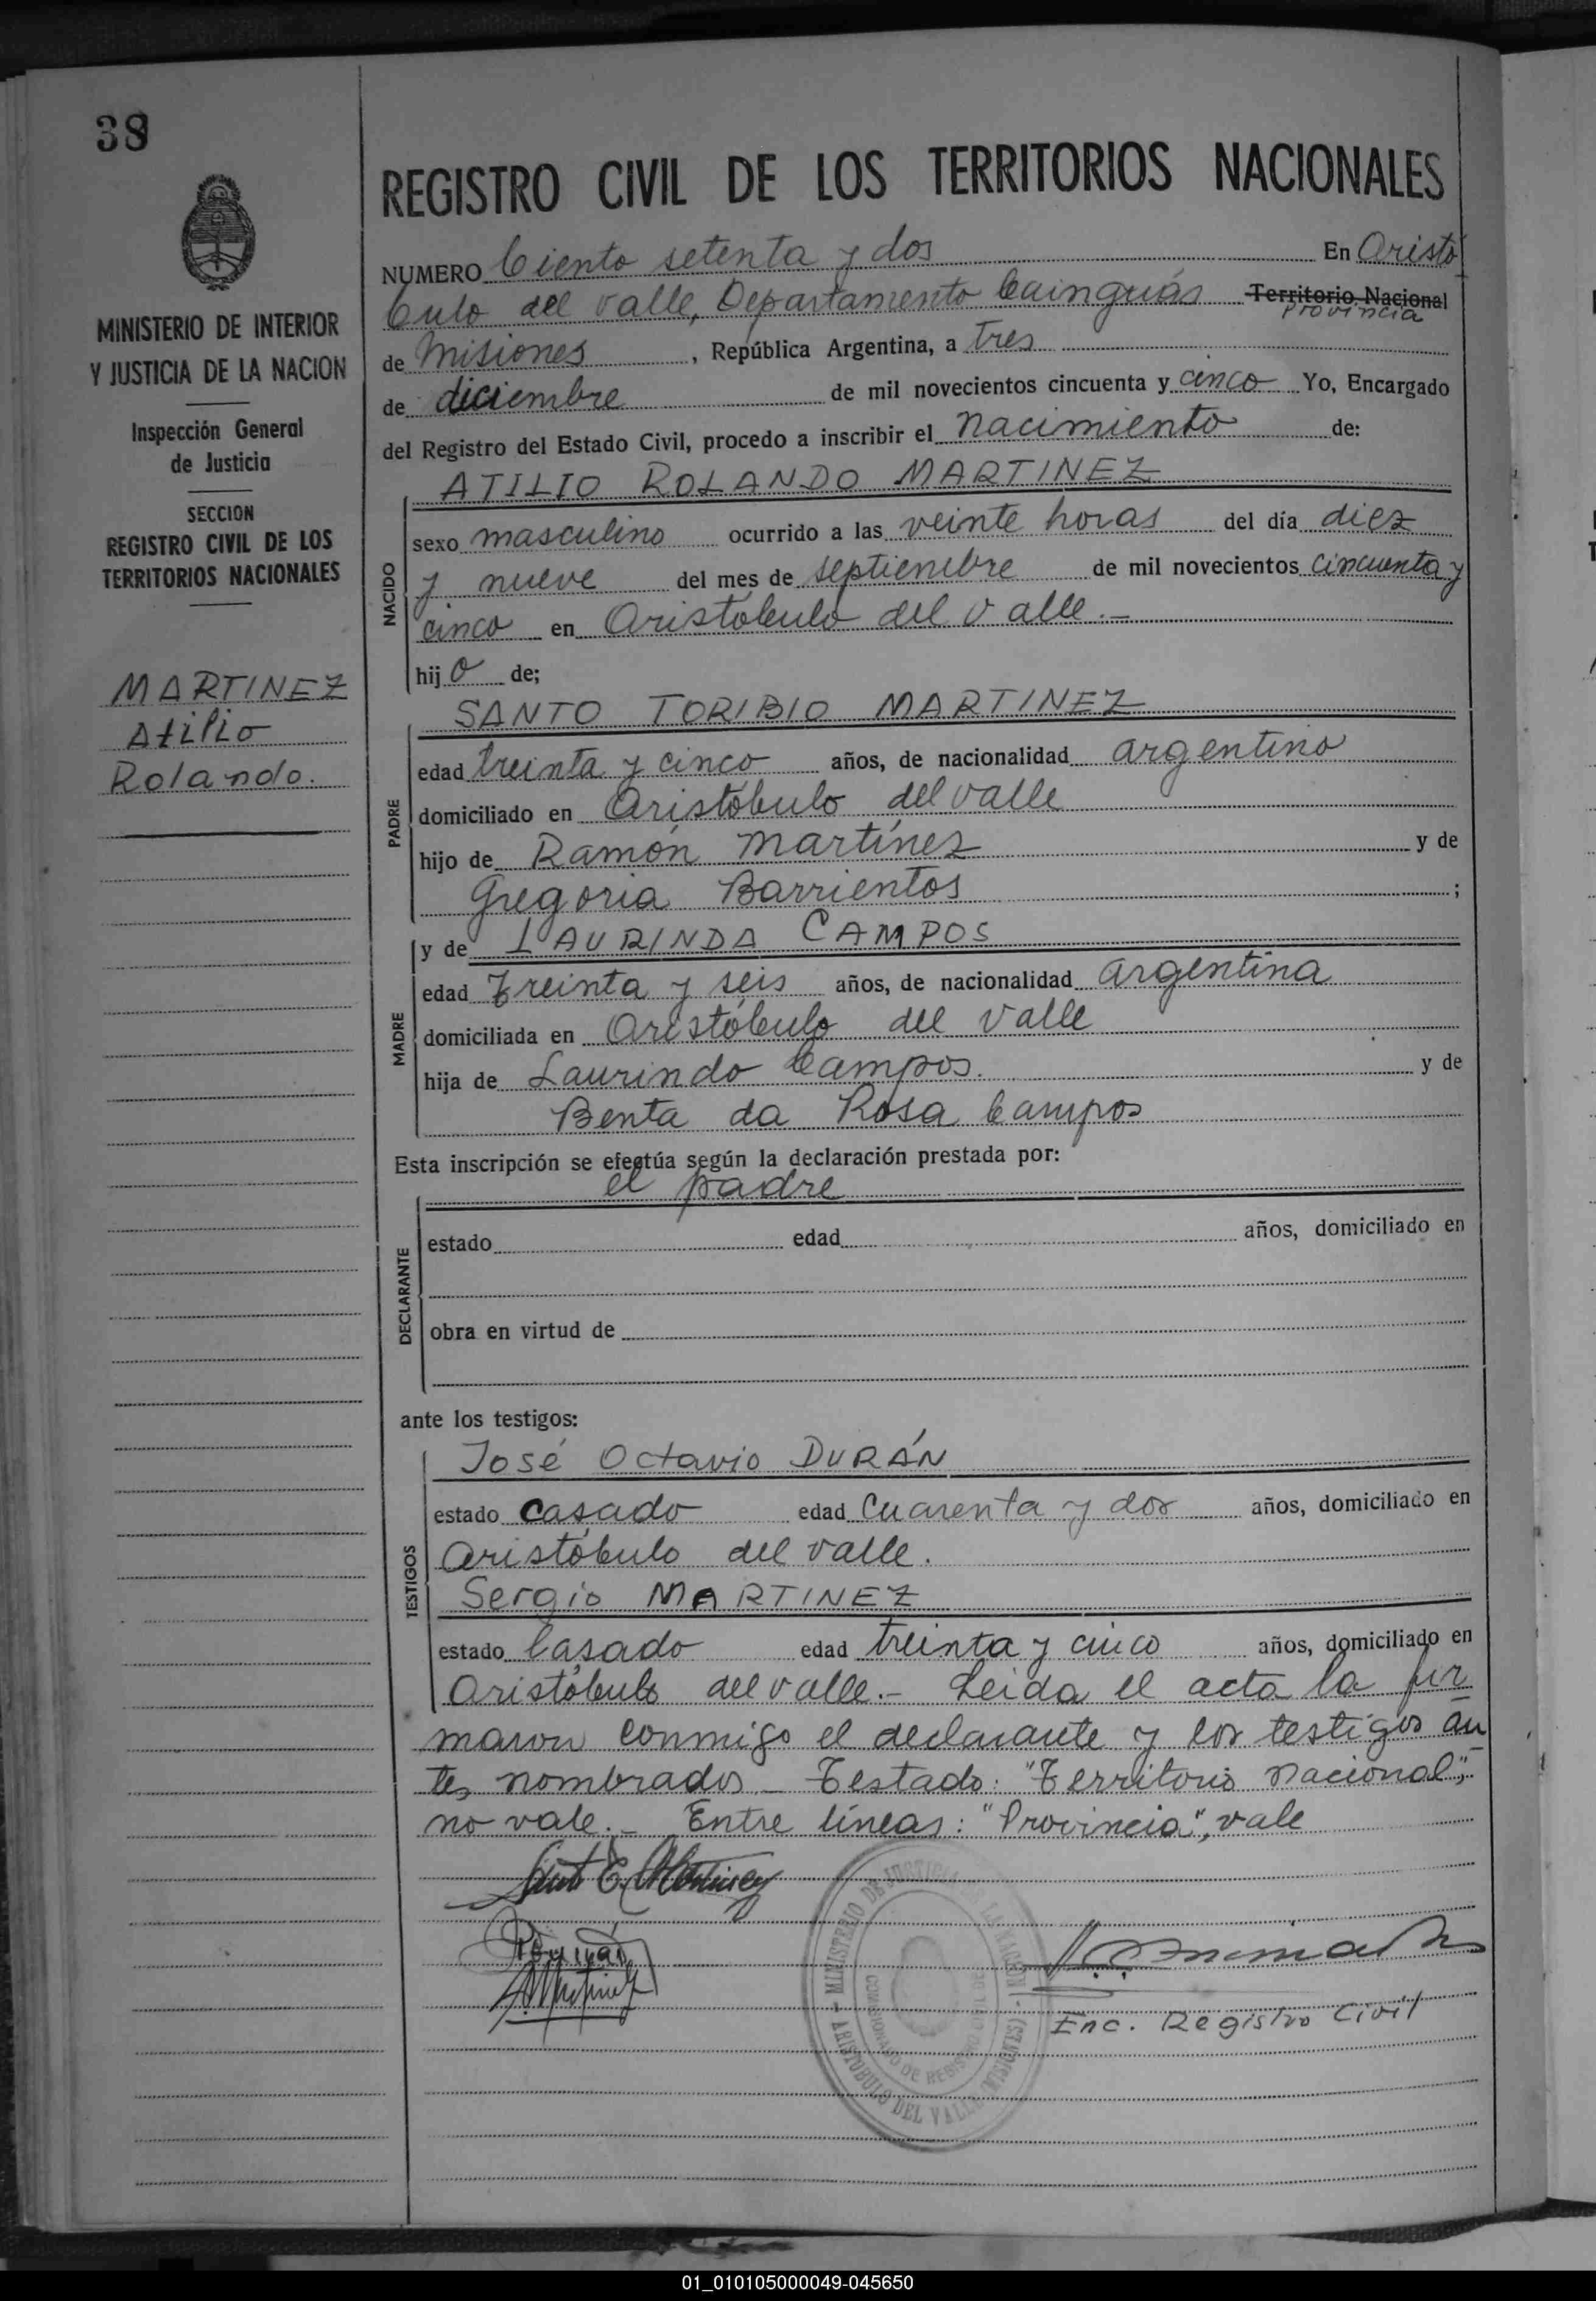 38
MINISTERIO DE INTERIOR
Y JUSTICIA DE LA NACION
Inspección General
de Justicia
SECCION
REGISTRO CIVIL DE LOS
TERRITORIOS NACIONALES
MARTINEZ
Atilio
Rolando.
REGISTRO CIVIL DE LOS TERRITORIOS NACIONALES
NUMERO Ciento setenta y dos En Aristó
bulo del Valle, Departamento Cainguás Territorio Nacional
Provincia
de Misiones, República Argentina, a tres
de diciembre de mil novecientos cincuenta y cinco Yo, Encargado
del Registro del Estado Civil, procedo a inscribir el Nacimiento de:
ATILIO ROLANDO MARTINEZ
NACIDO
sexo masculino ocurrido a las veinte horas del día diez
y nueve del mes de septiembre de mil novecientos cincuenta y
cinco en Aristóbulo del Valle.-
hijo de;
SANTO TORIBIO MARTINEZ
PADRE
edad treinta y cinco años, de nacionalidad argentino
domiciliado en Aristóbulo del Valle
hijo de Ramón Martínez y de
Gregoria Barrientos ;
y de LAURINDA CAMPOS
MADRE
edad treinta y seis años, de nacionalidad argentina
domiciliada en Aristóbulo del Valle
hija de Laurindo Campos. y de
Benta da Rosa Campos
Esta inscripción se efectúa según la declaración prestada por:
el padre
DECLARANTE
estado edad años, domiciliado en
obra en virtud de
ante los testigos:
José Octavio DURÁN
TESTIGOS
estado casado edad cuarenta y dos años, domiciliado en
Aristóbulo del Valle.
Sergio MARTINEZ
estado Casado edad treinta y cinco años, domiciliado en
Aristóbulo del Valle.- Leida el acta la fir
maron conmigo el declarante y los testigos an
tes nombrados.- Testado: "Territorio Nacional",
no vale.- Entre líneas: "Provincia", vale
Enc. Registro Civil
MINISTERIO DE JUSTICIA LA NACION
ARISTOBULO DEL VALLE (MISIONES)
COMISIONADO DE REGISTRO CIVIL DE
01_010105000049-045650